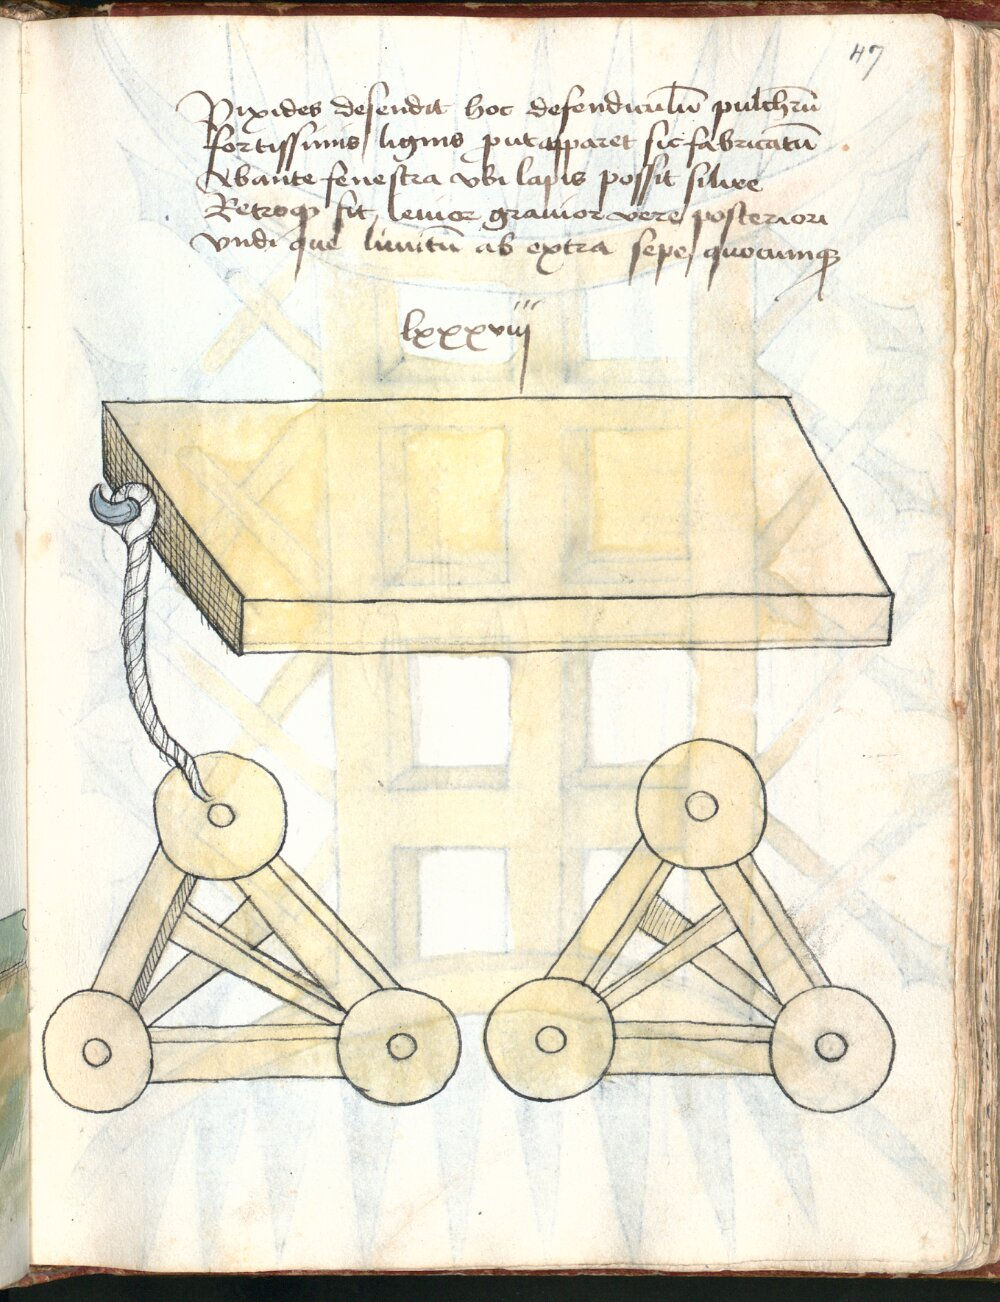 47
Pixides defendit hoc defendiculū pulchrū
fortissimis lignis put apparet sic fabricatū
Abante fenestra vbi lapis possit silire
Retroqꝫ sit leuior grauior vere posteriori
vndique linitū ab extra sepe quocumqꝫ
lxxxviij